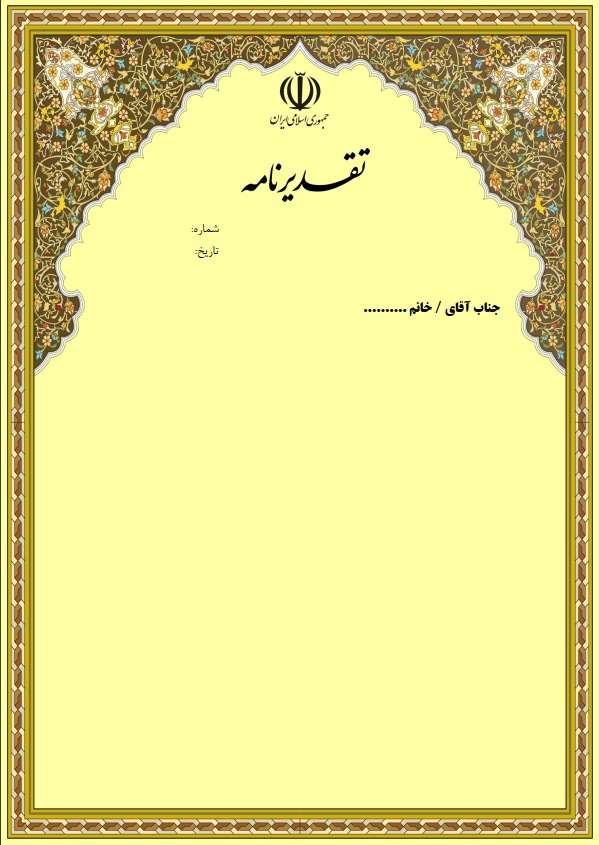 جمهوری اسلامی ایران
تقدیرنامه
شماره:
تاریخ:
جناب آقای / خانم ..........